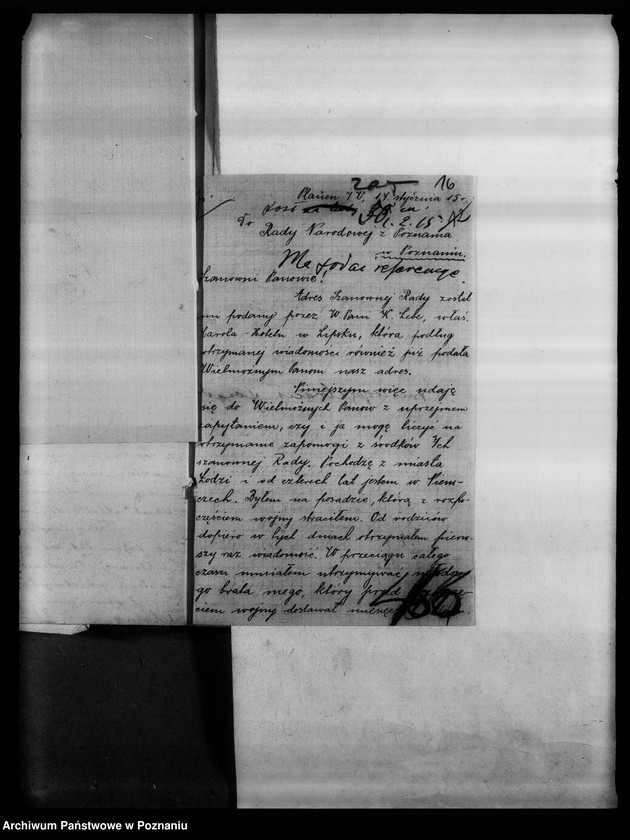 16
Plauen i/V, 14 stycznia 15.
Do
Rady Narodowej z Poznania
w Poznaniu.
Ma podać referencye.
Szanowni Panowie!
Adres Szanownej Rady został
mi podany przez W. Pani K. właś.
Carola-Hotelu w Lipsku, która podług
otrzymanej wiadomości również już podała
Wielmożnym Panom nasz adres.
Niniejszym więc udaję
się do Wielmożnych Panów z uprzejmem
zapytaniem, czy i ja mogę liczyć na
otrzymanie zapomogi z środków Ich
szanownej Rady. Pochodzę z miasta
Łodzi i od czterech lat jestem w Niem-
czech. Byłem na posadzie, którą z rozpo-
częciem wojny straciłem. Od rodziców
dopiero w tych dniach otrzymałem pierw-
szy raz wiadomość. W przeciągu całego
czasu musiałem utrzymywać młodsze-
go brata mego, który przed
ciem wojny dostawał
466
Archiwum Państwowe w Poznaniu